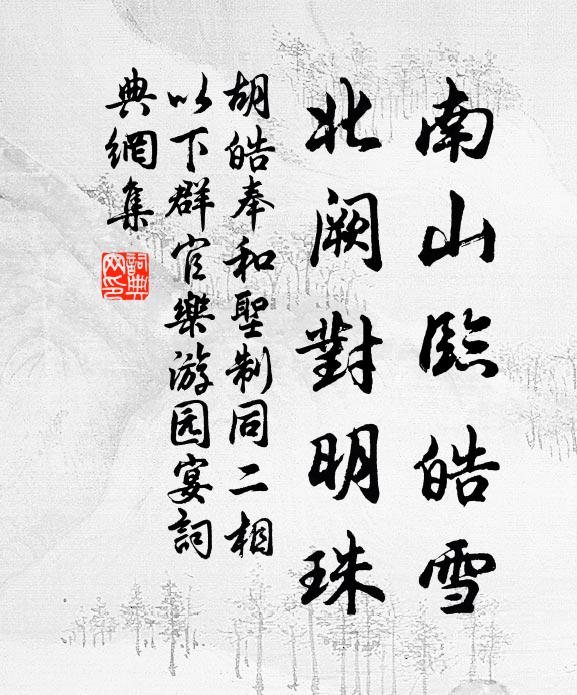 南山臨皓雪
北闕對明珠
胡皓奉和聖制同二相
以下群官樂游园宴詞
典網集
詞典
网印